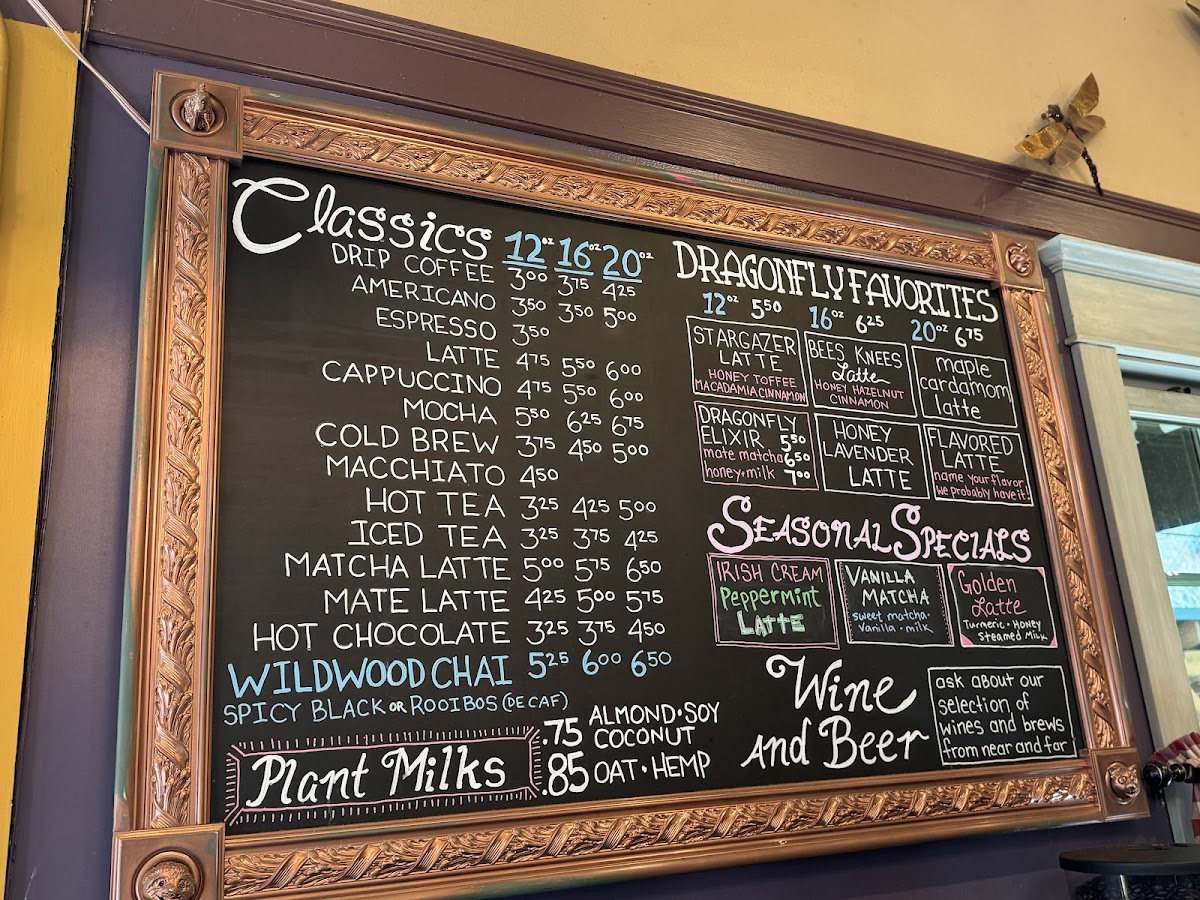 Classics 12oz 16oz 20oz
DRIP COFFEE 300 375 425
AMERICANO 350 350 500
ESPRESSO 350
LATTE 475 550 600
CAPPUCCINO 475 550 600
MOCHA 550 625 675
COLD BREW 375 450 500
MACCHIATO 450
HOT TEA 325 425 500
ICED TEA 325 375 425
MATCHA LATTE 500 575 650
MATE LATTE 425 500 575
HOT CHOCOLATE 325 375 450
WILDWOOD CHAI 525 600 650
SPICY BLACK OR ROOIBOS (DECAF)
Plant Milks
.75 ALMOND • SOY
COCONUT
.85 OAT • HEMP
DRAGONFLY FAVORITES
12oz 550 16oz 625 20oz 675
STARGAZER
LATTE
HONEY TOFFEE
MACADAMIA CINNAMON
BEES KNEES
Latte
HONEY HAZELNUT
CINNAMON
maple
cardamom
latte
DRAGONFLY
ELIXIR 550
mate matcha 650
honey • milk 700
HONEY
LAVENDER
LATTE
FLAVORED
LATTE
name your flavor,
we probably have it!
SEASONAL SPECIALS
IRISH CREAM
Peppermint
LATTE
VANILLA
MATCHA
sweet matcha •
vanilla • milk
Golden
Latte
Turmeric • HONEY
Steamed Milk
Wine
and Beer
ask about our
selection of
wines and brews
from near and far